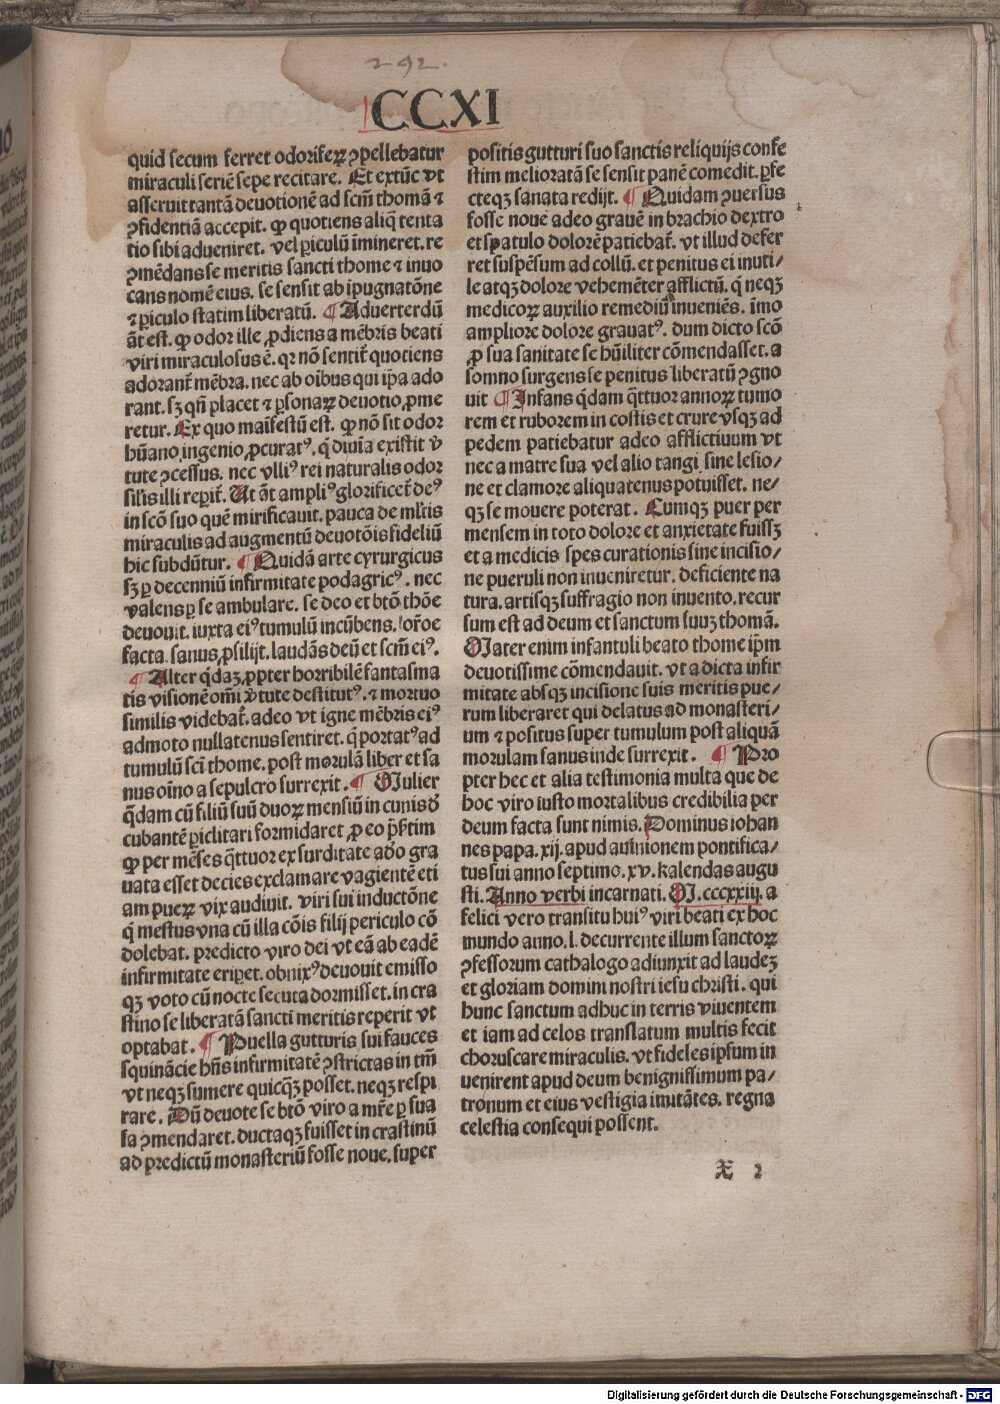 292.
CCXI
quid secum ferret odoriferꝝ ꝯpellebatur
miraculi seriē sepe recitare. Et extūc vt
asseruit tantā deuotionē ad scm̄ thomā ⁊
ꝯfidentiā accepit. ꝙ quotiens aliq̄ tenta
tio sibi adueniret. vel ꝑiculū imineret. re
ꝯmēdans se meritis sancti thome ⁊ inuo
cans nomē eius. se sensit ab īpugnatōne
⁊ ꝑiculo statim liberatū. ¶ Aduertendū
āt est. ꝙ odor ille ꝓdiens a mēbris beati
viri miraculosus ē. qꝛ nō sentit̄ quotiens
adorant̄ mēbra. nec ab oībus qui ip̄a ado
rant. sꝫ qn̄ placet ⁊ ꝑsonaꝝ deuotio ꝓme
retur. Ex quo maifestū est. ꝙ nō sit odor
hūano ingenio ꝓcuratꝰ. q̄ diuīa existit v̄
tute ꝯcessus. nec vlliꝰ rei naturalis odor
sil̄is illi reꝑit̄. Ut āt ampliꝰ glorificet̄ deꝰ
in scō suo quē mirificauit. pauca de ml̄tis
miraculis ad augmentū deuotōis fideliū
hic subdūtur. ¶ Quidā arte cyrurgicus
sꝫ ꝑ decenniū infirmitate podagricꝰ. nec
valens ꝑ se ambulare. se deo et btō thōe
deuouit. iuxta eiꝰ tumulū incūbens. or̄oe
facta. sanus ꝓsilijt. laudās deū et scm̄ eiꝰ.
¶ Alter q̄daꝫ ꝓpter horribilē fantasma
tis visionē om̄i v̄tute destitutꝰ. ⁊ mortuo
similis videbat̄. adeo vt igne mēbris eiꝰ
admoto nullatenus sentiret. q̄ portatꝰ ad
tumulū scī thome. post morulā liber et sa
nus oīno a sepulcro surrexit. ¶ Mulier
q̄dam cū filiū suū duoꝝ mensiū in cunis d̄
cubantē ꝑiclitari formidaret ꝓ eo p̄sertim
ꝙ per mēses q̄ttuor ex surditate adeo gra
uata esset decies exclamare vagientē eti
am pueꝝ vix audiuit. viri sui inductōne
q̄ mestus vna cū illa cōis filij periculo cō
dolebat. predicto viro dei vt eā ab eadē
infirmitate eriꝑet. obnixꝰ deuouit emisso
qꝫ voto cū nocte secuta dormisset. in cra
stino se liberatā sancti meritis reperit vt
optabat. ¶ Puella gutturis sui fauces
squinācie hn̄s infirmitatē ꝯstrictas in tm̄
vt neqꝫ sumere quicq̄ꝫ posset. neqꝫ respi
rare. Dū deuote se btō viro a mr̄e ꝑ sua
sa ꝯmendaret. ductaqꝫ fuisset in crastinū
ad predictū monasteriū fosse noue. super
positis gutturi suo sanctis reliquijs confe
stim melioratā se sensit panē comedit. ꝑfe
cteqꝫ sanata redijt. ¶ Quidam ꝯuersus
fosse noue adeo grauē in brachio dextro
et spatulo dolorē patiebat̄. vt illud defer
ret suspēsum ad collū. et penitus ei inuti/
le atqꝫ dolore vehemēter afflictū. q̄ neqꝫ
medicoꝝ auxilio remediū inueniēs. īmo
ampliore dolore grauatꝰ. dum dicto scō
ꝓ sua sanitate se hūiliter cōmendasset. a
somno surgens se penitus liberatū ꝯgno
uit ¶ Infans q̄dam q̄ttuor annoꝝ tumo
rem et ruborem in costis et crure vsqꝫ ad
pedem patiebatur adeo afflictiuum vt
nec a matre sua vel alio tangi sine lesio/
ne et clamore aliquatenus potuisset. ne/
qꝫ se mouere poterat. Cumqꝫ puer per
mensem in toto dolore et anxietate fuissꝫ
et a medicis spes curationis sine incisio/
ne pueruli non inueniretur. deficiente na
tura. artisqꝫ suffragio non inuento. recur
sum est ad deum et sanctum suuꝫ thomā.
Mater enim infantuli beato thome ip̄m
deuotissime cōmendauit. vt a dicta infir
mitate absqꝫ incisione suis meritis pue/
rum liberaret qui delatus ad monasteri/
um ⁊ positus super tumulum post aliquā
morulam sanus inde surrexit. ¶ Pro
pter hec et alia testimonia multa que de
hoc viro iusto mortalibus credibilia per
deum facta sunt nimis. Dominus iohan
nes papa. xij. apud auinionem pontifica/
tus sui anno septimo. xv. kalendas augu
sti. Anno verbi incarnati. M.cccxxiij. a
felici vero transitu huiꝰ viri beati ex hoc
mundo anno. l. decurrente illum sanctoꝝ
ꝯfessorum cathalogo adiunxit ad laudeꝫ
et gloriam domini nostri iesu christi. qui
hunc sanctum adhuc in terris viuentem
et iam ad celos translatum multis fecit
choruscare miraculis. vt fideles ipsum in
uenirent apud deum benignissimum pa/
tronum et eius vestigia imitātes. regna
celestia consequi possent.
X 2
Digitalisierung gefördert durch die Deutsche Forschungsgemeinschaft - DFG